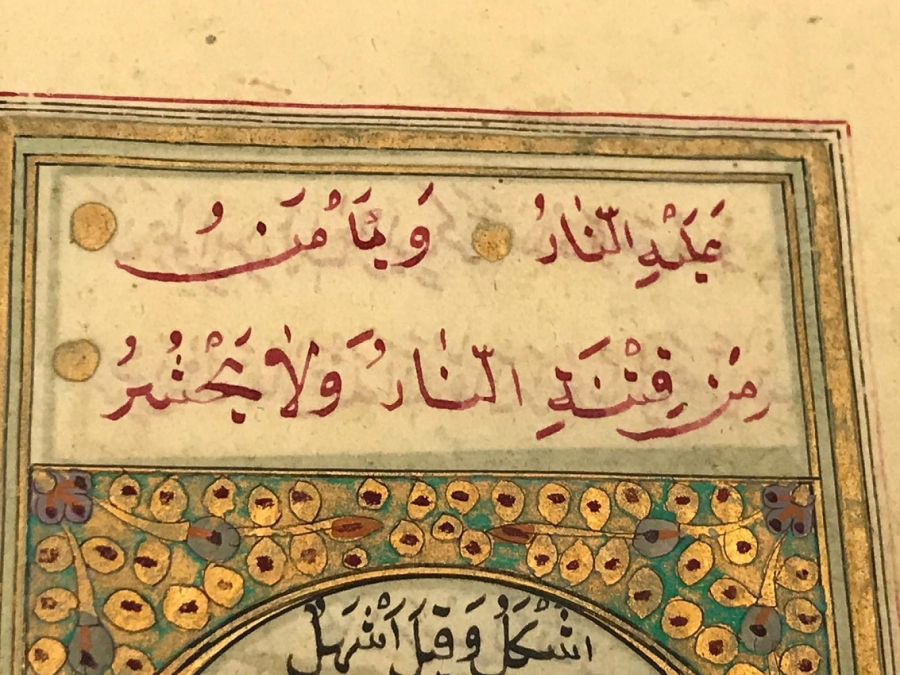 عَلَيْهِ النَّارُ وَيَأْمَنُ
مِنْ فِتْنَةِ النَّارِ وَلَا يَحْشُرُ
اشْكَلُ وَقِيلَ اَشْهَلُ